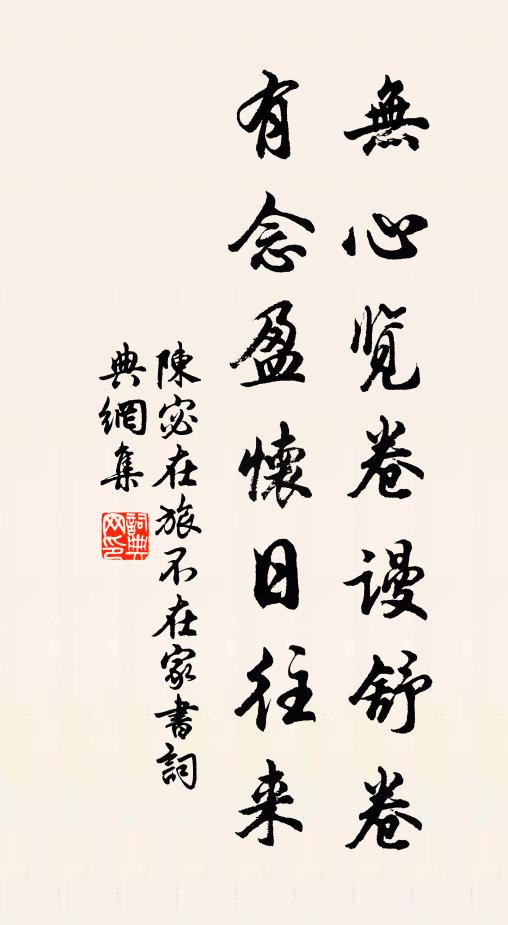 無心览卷謾舒卷
有念盈懷日往来
陳宓在旅不在家書詞
典網集
詞典
网印